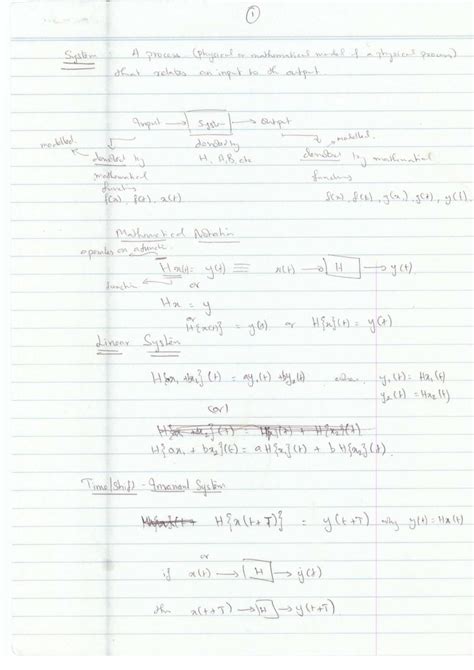 1
System : A process (physical or mathematical model of a physical process)
that relates an input to the output.
Input → System → Output
modelled. denoted by mathematical functions f(x), f(t), x(t)
denoted by H, A, B etc
modelled. denoted by mathematical functions f(x), f(t), g(x), g(t), y(t)
Mathematical Notation
operates on a function
H x(t) = y(t) ≡ x(t) → H → y(t)
function
or
Hx = y
or
H{x(t)} = y(t) or H{x}(t) = y(t)
Linear System
H{ax, +bx2}(t) = ay1(t) + by2(t) where, y1(t) = Hx1(t)
y2(t) = Hx2(t)
(or)
H{ax1 + bx2}(t) = a H{x1}(t) + b H{x2}(t).
Time/Shift - Invariant System
H{x(t+T)} = y(t+T) y(t) = Hx(t)
or
if x(t) → H → y(t)
then x(t+T) → H → y(t+T)